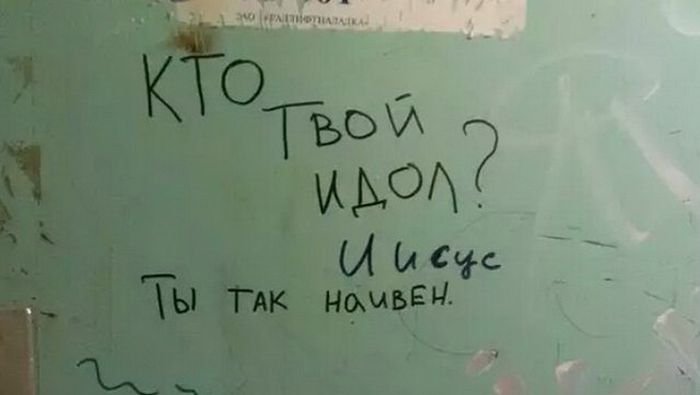 ЗАО «РАДЛИФТНАЛАДКА»
КТО
ТВОЙ
ИДОЛ?
Иисус
ТЫ ТАК НАИВЕН.